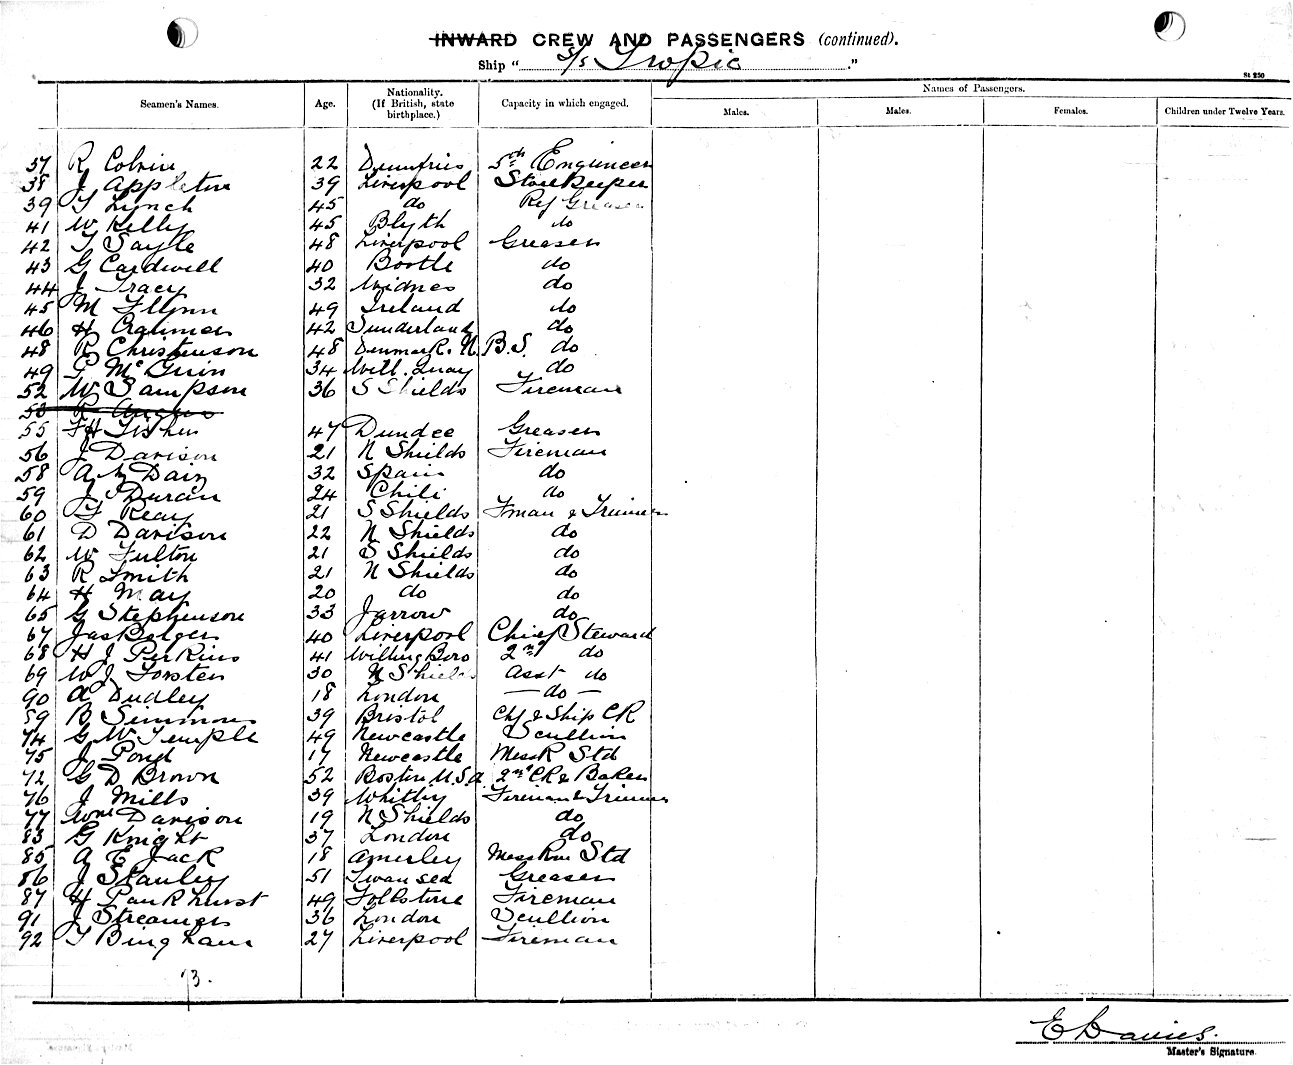 INWARD CREW AND PASSENGERS (continued).
Ship "S/s Tropic."
St 250
Seamen's Names. Age. Nationality. (If British, state birthplace.) Capacity in which engaged. Names of Passengers.
Males. Males. Females. Children under Twelve Years.
37 R Colvin 22 Dumfries 5th Engineer
38 J Appleton 39 Liverpool Storekeeper
39 T Lynch 45 do Rfg Greaser
41 W Kelly 45 Blyth do
42 T Sayle 48 Liverpool Greaser
43 G Cardwell 40 Bootle do
44 J Tracy 32 Widnes do
45 M Flynn 49 Ireland do
46 H Cranmer 42 Sunderland do
48 R Christenson 48 Denmark. N.B.S. do
49 P McGuin 34 Will. Quay do
52 W Sampson 36 S Shields Fireman
53 R
55 F H Fisher 47 Dundee Greaser
56 J Davison 21 N Shields Fireman
58 A M Daiz 32 Spain do
59 J Duran 24 Chili do
60 T Reay 21 S Shields Fman & Trimmer
61 D Davison 22 N Shields do
62 W Fulton 21 S Shields do
63 R Smith 21 N Shields do
64 H May 20 do do
65 G Stephenson 33 Jarrow do
67 Jas Bolger 40 Liverpool Chief Steward
68 H J Perkins 41 Willingboro 2nd do
69 W J Forster 30 N Shields Asst do
90 A Dudley 18 London — do —
89 B Simmons 39 Bristol Chf & Ship CK
74 G W Temple 49 Newcastle Scullion
75 J Pond 17 Newcastle MessR Std
72 G D Brown 52 Boston U.S.A 2nd CK & Baker
76 J Mills 39 Whitby Fireman & Trimmer
77 Wm Davison 19 N Shields do
83 G Knight 37 London do
85 A E Jack 18 Amerley MessRm Std
86 J Stanley 51 Swansea Greaser
87 H Pankhurst 49 Folkstone Fireman
91 J Streamer 36 London Scullion
92 T Bingham 27 Liverpool Fireman
73.
E Davies.
Master's Signature.